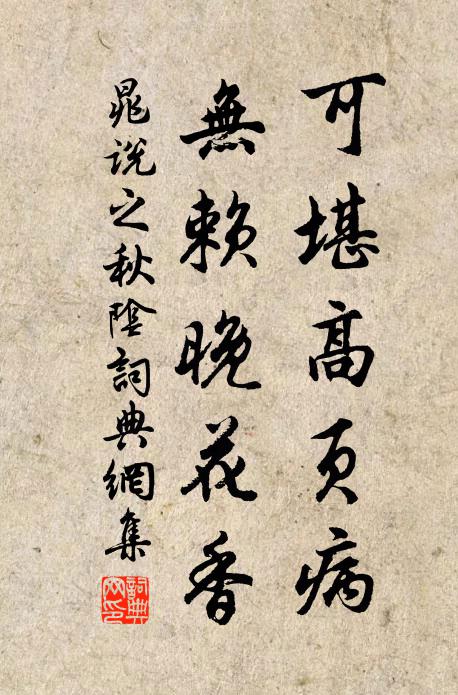 可堪高頁病
無賴晚花香
晁說之秋陰詞典網集
詞典網印